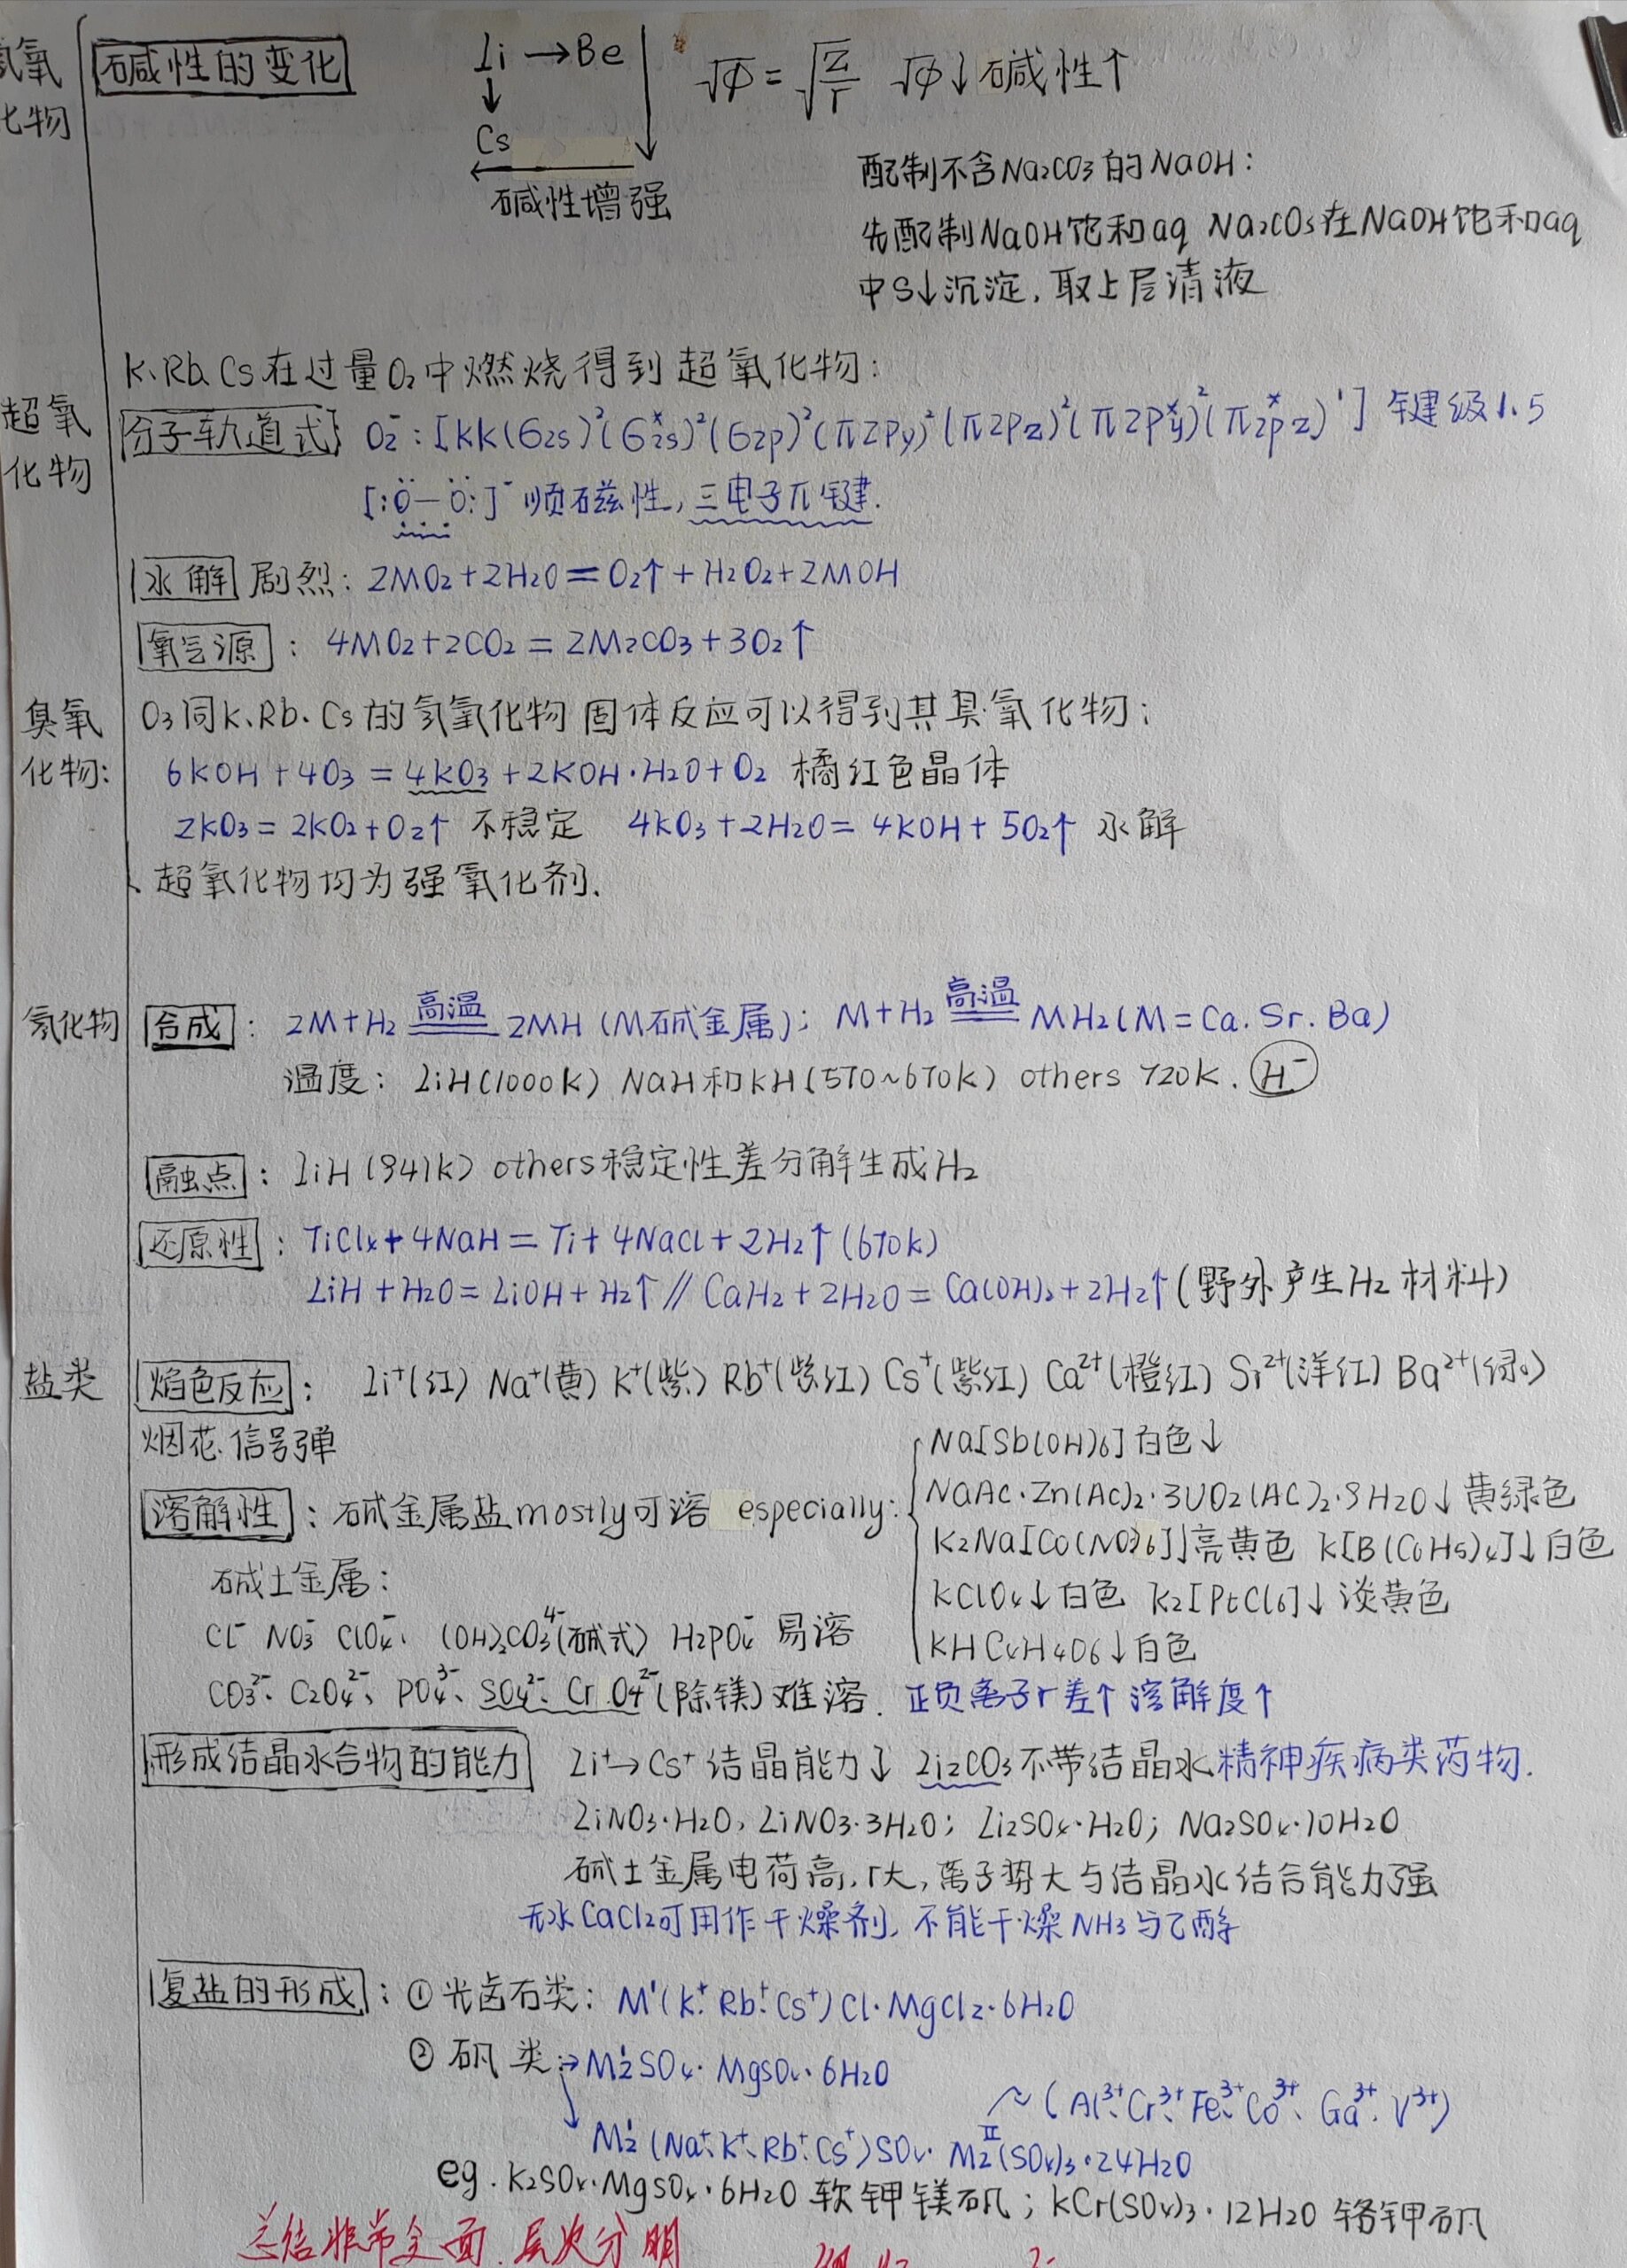 氢氧化物
碱性的变化
Li → Be
↓
Cs
碱性增强
√φ = √(Z/r) √φ↓碱性↑
配制不含Na₂CO₃的NaOH:
先配制NaOH饱和aq Na₂CO₃在NaOH饱和aq
中S↓沉淀,取上层清液
超氧化物
K、Rb、Cs在过量O₂中燃烧得到超氧化物:
分子轨道式 O₂⁻:[KK(σ2s)²(σ*2s)²(σ2p)²(π2Py)²(π2Pz)²(π2P*y)²(π2p*z)¹] 键级1.5
[:Ö—Ö:]⁻ 顺磁性,三电子π键.
水解 剧烈: 2MO₂+2H₂O=O₂↑+H₂O₂+2MOH
氧气源: 4MO₂+2CO₂=2M₂CO₃+3O₂↑
臭氧化物:
O₃同K、Rb、Cs的氢氧化物固体反应可以得到其臭氧化物:
6KOH+4O₃=4KO₃+2KOH·H₂O+O₂ 橘红色晶体
2KO₃=2KO₂+O₂↑ 不稳定 4KO₃+2H₂O=4KOH+5O₂↑ 水解
超氧化物均为强氧化剂.
氢化物
合成: 2M+H₂ =高温= 2MH (M碱金属); M+H₂ =高温= MH₂(M=Ca. Sr. Ba)
温度: LiH(1000K) NaH和KH(570~670K) others 720K. H⁻
融点: LiH(941K) others稳定性差分解生成H₂
还原性: TiCl₄+4NaH=Ti+4NaCl+2H₂↑(670K)
LiH+H₂O=LiOH+H₂↑ // CaH₂+2H₂O=Ca(OH)₂+2H₂↑(野外产生H₂材料)
盐类
焰色反应: Li⁺(红) Na⁺(黄) K⁺(紫) Rb⁺(紫红) Cs⁺(紫红) Ca²⁺(橙红) Sr²⁺(洋红) Ba²⁺(绿)
烟花.信号弹
溶解性: 碱金属盐mostly可溶 especially:
Na[Sb(OH)₆]白色↓
NaAc·Zn(Ac)₂·3UO₂(AC)₂·9H₂O↓黄绿色
K₂Na[Co(NO₂)₆]↓亮黄色 K[B(C₆H₅)₄]↓白色
KClO₄↓白色 K₂[PtCl₆]↓淡黄色
KHC₄H₄O₆↓白色
碱土金属:
Cl⁻ NO₃⁻ ClO₄⁻、(OH)₂CO₃⁴⁻(碱式) H₂PO₄⁻ 易溶
CO₃²⁻、C₂O₄²⁻、PO₄³⁻、SO₄²⁻、CrO₄²⁻(除镁)难溶. 正负离子r差↑溶解度↑
形成结晶水合物的能力 Li⁺→Cs⁺结晶能力↓ Li₂CO₃不带结晶水精神疾病类药物.
LiNO₃·H₂O, LiNO₃·3H₂O; Li₂SO₄·H₂O; Na₂SO₄·10H₂O
碱土金属电荷高,r大,离子势大与结晶水结合能力强
无水CaCl₂可用作干燥剂,不能干燥NH₃与乙醇
复盐的形成: ①光卤石类: Mᴵ(K⁺、Rb⁺、Cs⁺)Cl·MgCl₂·6H₂O
②矾类: → Mᴵ₂SO₄·MgSO₄·6H₂O
↗(Al³⁺、Cr³⁺、Fe³⁺、Co³⁺、Ga³⁺、V³⁺)
Mᴵ₂(Na⁺、K⁺、Rb⁺、Cs⁺)SO₄·Mᴵᴵ₂(SO₄)₃·24H₂O
eg. K₂SO₄·MgSO₄·6H₂O 软钾镁矾; KCr(SO₄)₃·12H₂O 铬钾矾
总结非常全面.层次分明